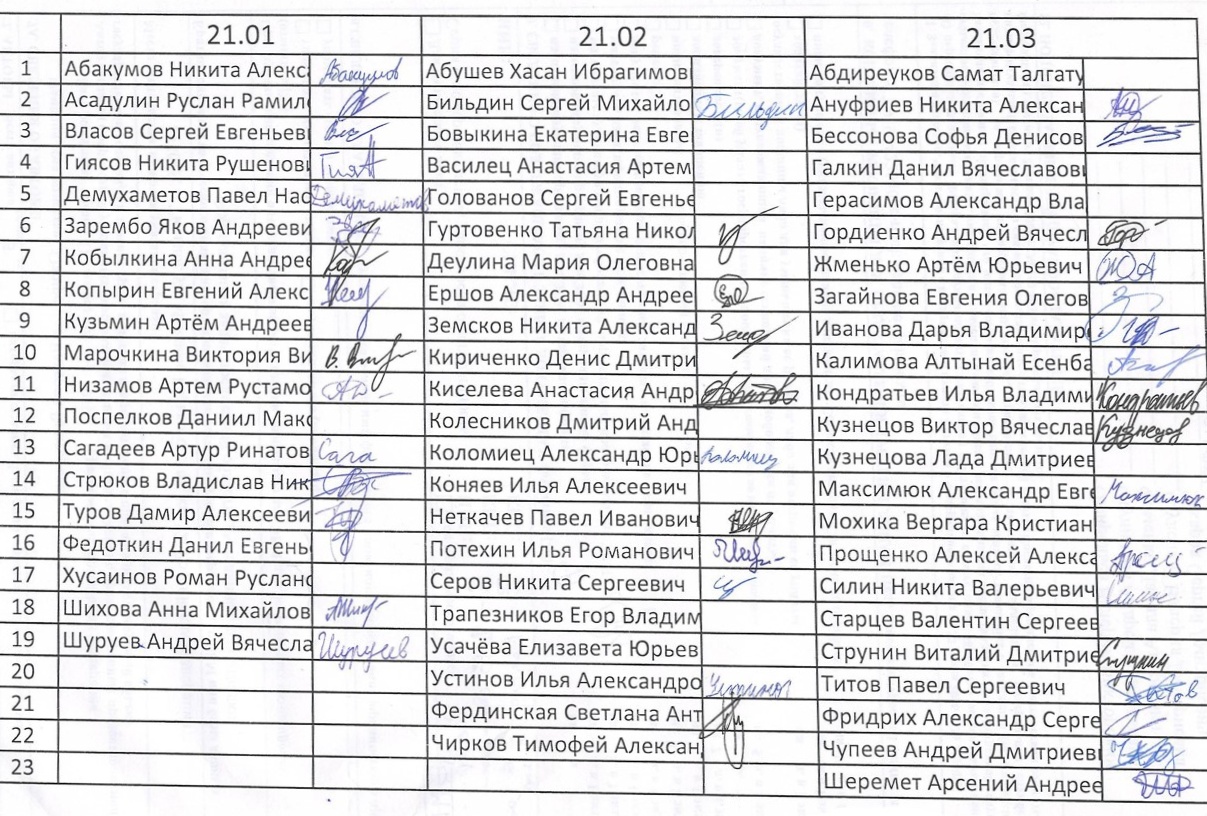 21.01 21.02 21.03
1 Абакумов Никита Алекс Абакумов Абушев Хасан Ибрагимов Абдиреуков Самат Талгату
2 Асадулин Руслан Рамил Бильдин Сергей Михайло Бильдин Ануфриев Никита Алексан
3 Власов Сергей Евгеньев Бовыкина Екатерина Евге Бессонова Софья Денисов
4 Гиясов Никита Рушенов Василец Анастасия Артем Галкин Данил Вячеславов
5 Демухаметов Павел Нас Демухаметов Голованов Сергей Евгенье Герасимов Александр Вла
6 Зарембо Яков Андрееви Гуртовенко Татьяна Никол Гордиенко Андрей Вячесл
7 Кобылкина Анна Андрее Деулина Мария Олеговна Жменько Артём Юрьевич
8 Копырин Евгений Алекс Ершов Александр Андрее Загайнова Евгения Олегов
9 Кузьмин Артём Андреев Земсков Никита Александ Иванова Дарья Владимир
10 Марочкина Виктория Ви Кириченко Денис Дмитри Калимова Алтынай Есенба
11 Низамов Артем Рустамо Киселева Анастасия Андр Кондратьев Илья Владими Кондратьев
12 Поспелков Даниил Макс Колесников Дмитрий Анд Кузнецов Виктор Вячеслав Кузнецов
13 Сагадеев Артур Ринатов Сага Коломиец Александр Юрь Коломиец Кузнецова Лада Дмитриев
14 Стрюков Владислав Ник Коняев Илья Алексеевич Максимюк Александр Евге Максимюк
15 Туров Дамир Алексееви Неткачев Павел Иванович Мохика Вергара Кристиан
16 Федоткин Данил Евгень Потехин Илья Романович Прощенко Алексей Алекса
17 Хусаинов Роман Руслано Серов Никита Сергеевич Силин Никита Валерьевич
18 Шихова Анна Михайлов Трапезников Егор Владим Старцев Валентин Сергеев
19 Шуруев Андрей Вячесла Шуруев Усачёва Елизавета Юрьев Струнин Виталий Дмитрие Струнин
20 Устинов Илья Александро Устинов Титов Павел Сергеевич Титов
21 Фердинская Светлана Ант Фридрих Александр Серге
22 Чирков Тимофей Алексан Чупеев Андрей Дмитриев
23 Шеремет Арсений Андрее